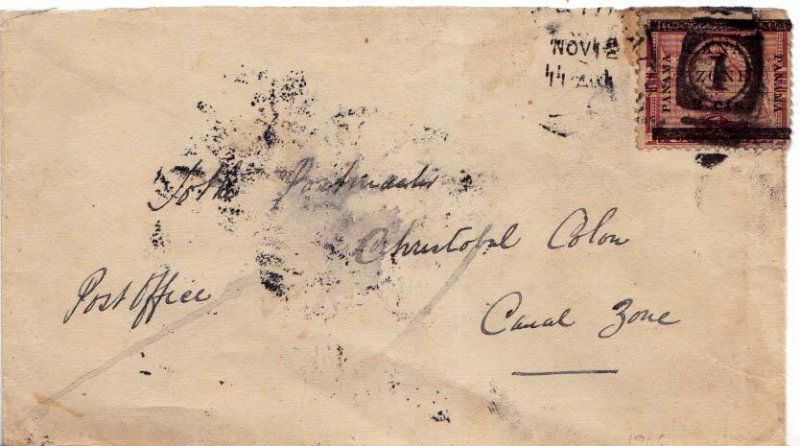 NOV 12
PANAMA
PANAMA
CANAL
ZONE
1
To the Postmaster
Christobal Colon
Post Office
Canal Zone